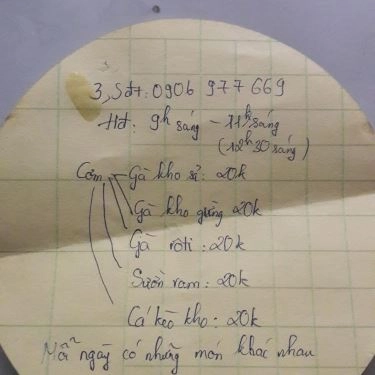 3, Sđt: 0906 977 669
Hđ: 9h sáng - 11h sáng
(12h30 sáng)
Cơm Gà kho sả: 20k
Gà kho gừng 20k
Gà rôti: 20k
Sườn ram: 20k
Cá kèo kho: 20k
Mỗi ngày có những món khác nhau